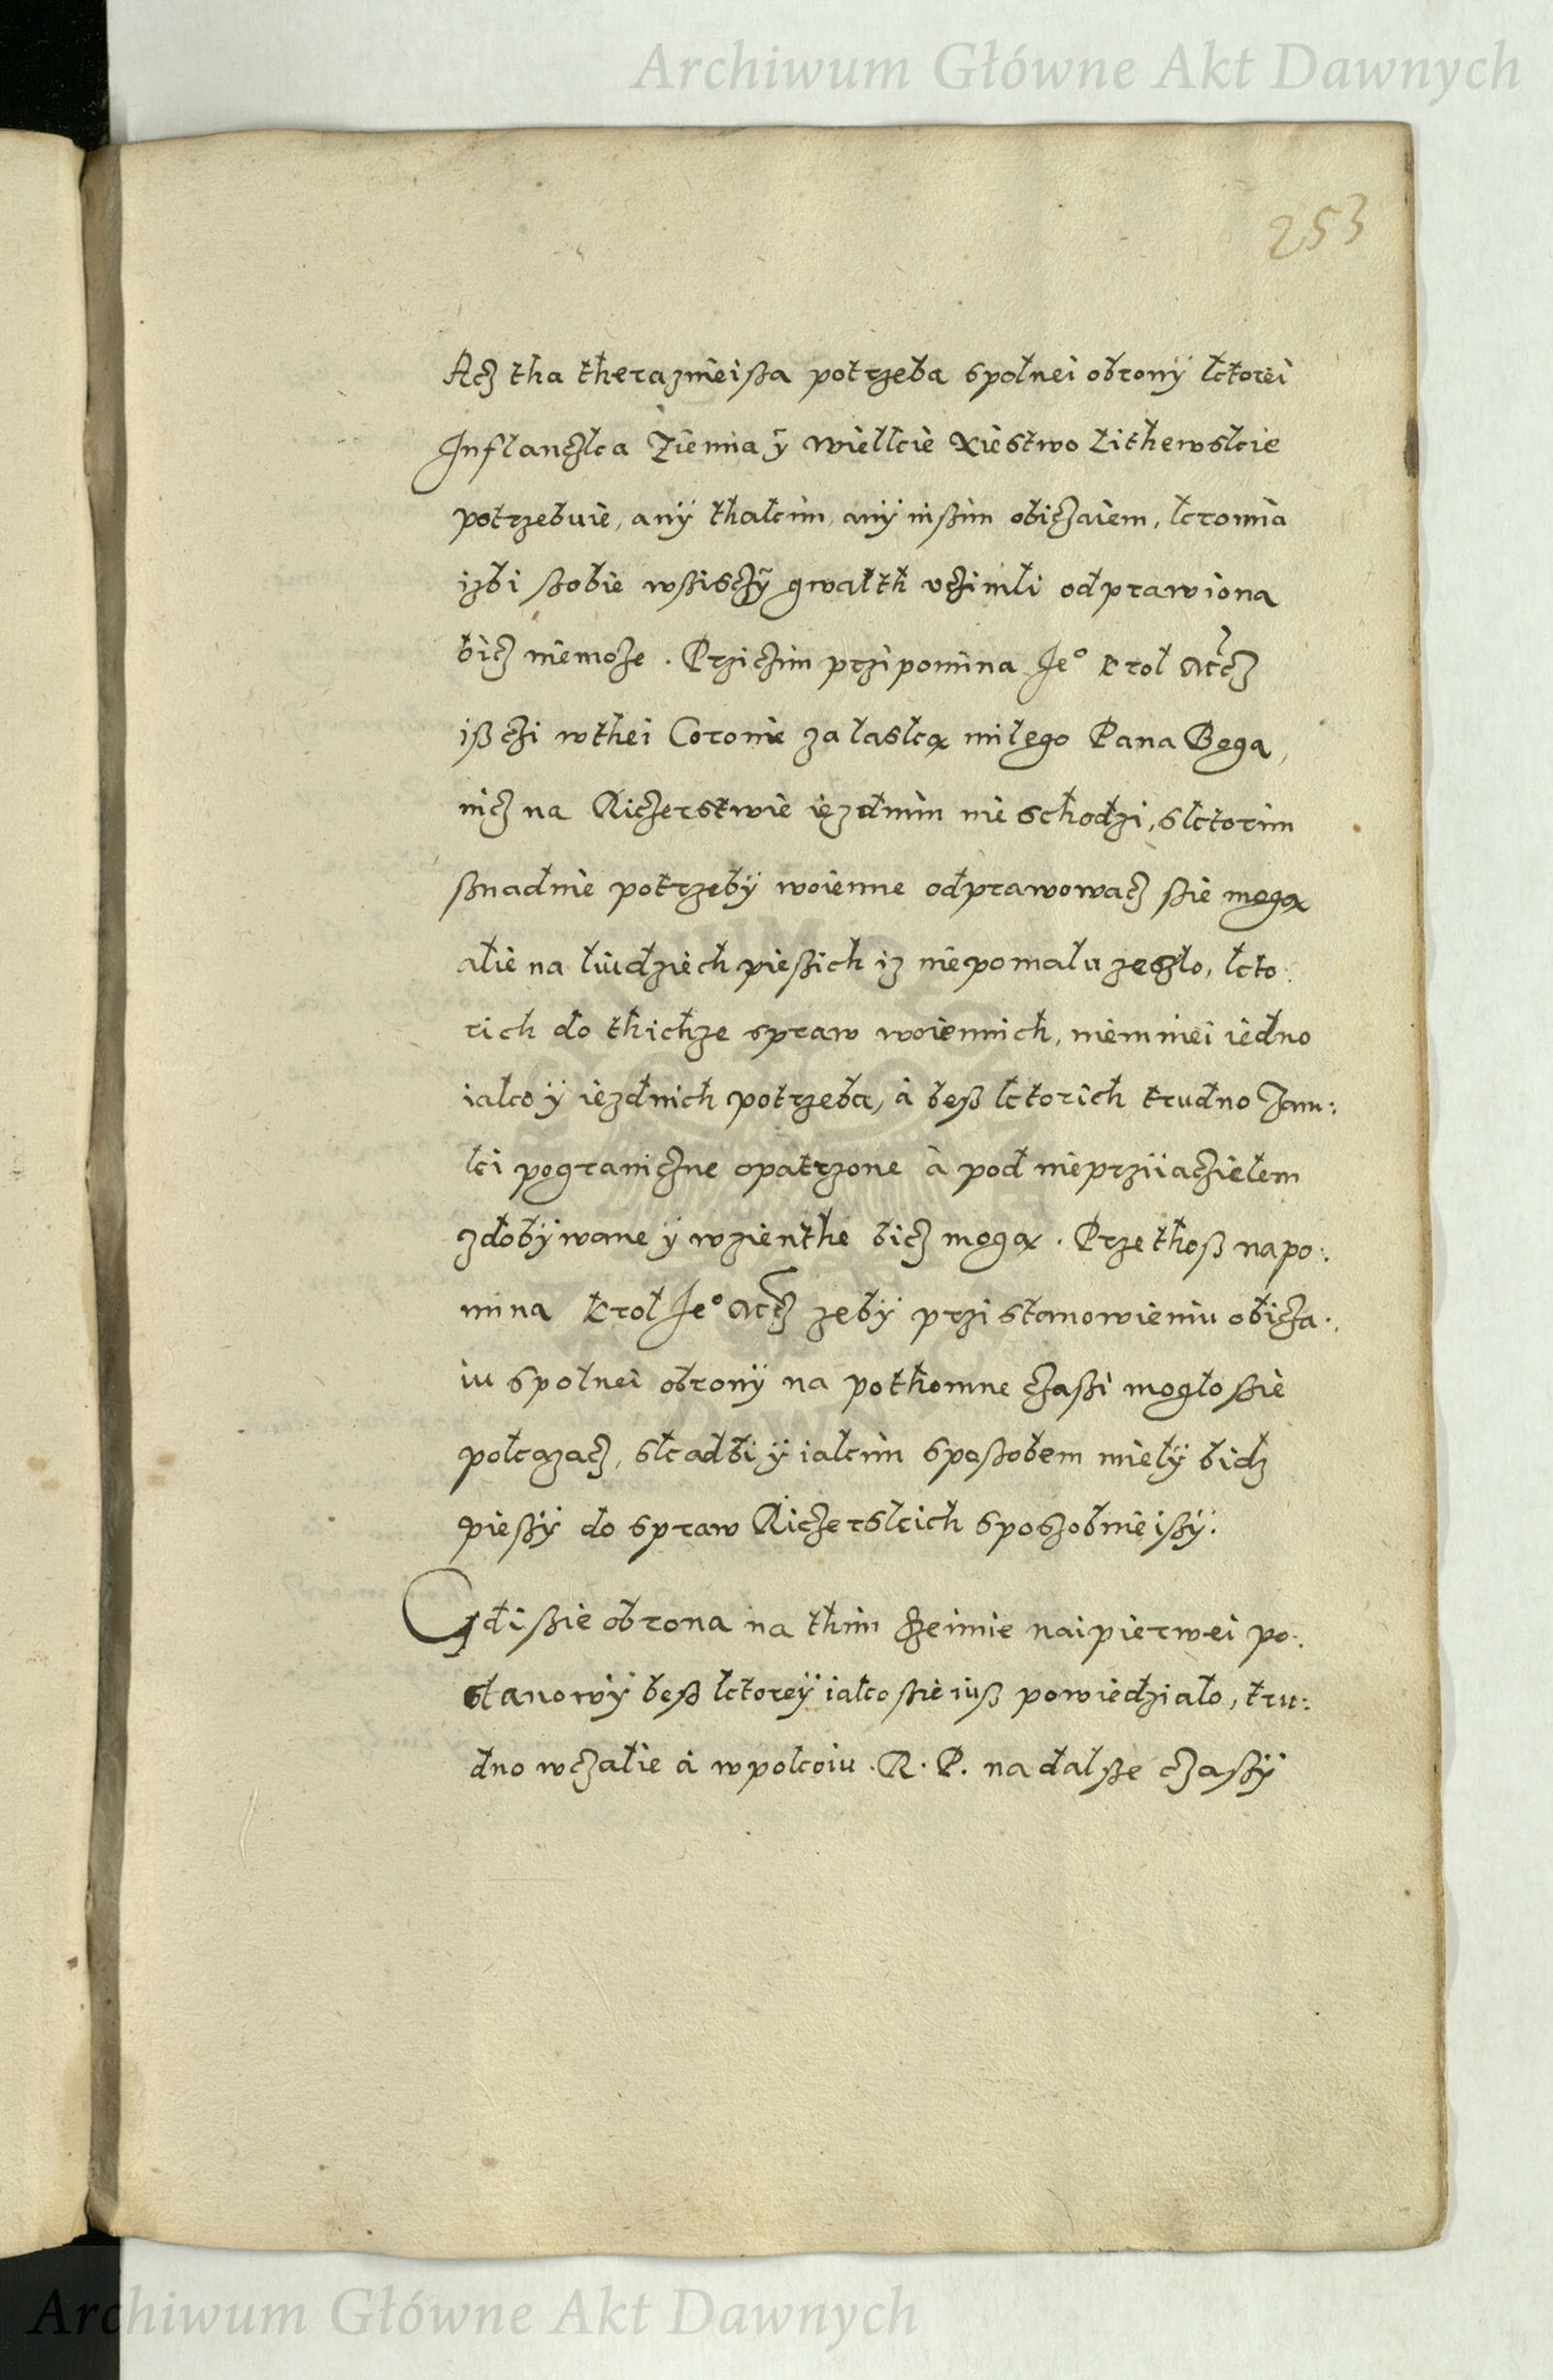 Archiwum Główne Akt Dawnych
253
Acz tha theraznieißa potrzeba spolnei obrony ktorei
Inflanczka Ziemia ÿ wielkie Xiestwo Lithewskie
potrzebuie, anÿ thakim, anÿ inßim obiczaiem, kromia
izbi ßobie wßisczÿ gwalth vczinili odprawiona
bicz niemoże. Prziczim przipomina Je° Krol Mcz
iß czi wthei Coronie za laską milego Pana Boga,
nicz na Riczerstwie iezdnim nie schodzi, sktorim
ßnadnie potrzebÿ woienne odprawowacz ßie mogą
alie na liudziech pießich iz niepomalu zeszlo, kto:
rich do thichże spraw woiennich, niemniei iedno
iako ÿ iezdnich potrzeba, à beß ktorich trudno Zam:
ki pograniczne opatrzone à pod nieprziiaczielem
zdobÿwane ÿ wzienthe bicz mogą. Przethoß napo:
mina Krol Je° Mcz żebÿ przi stanowieniu obicza:
iu spolnei obronÿ na pothomne czaßi moglo ßie
pokazacz, skadbi ÿ iakim spoßobem mielÿ bidz
pießÿ do spraw Riczerskich sposzobnieißÿ.
Gdi ßie obrona na thim szeimie naipierwei po:
stanowÿ beß ktoreÿ iako ßie iuß powiedzialo, tru:
dno wczalie à wpokoiu R. P. na dalße czaßÿ
Archiwum Główne Akt Dawnych